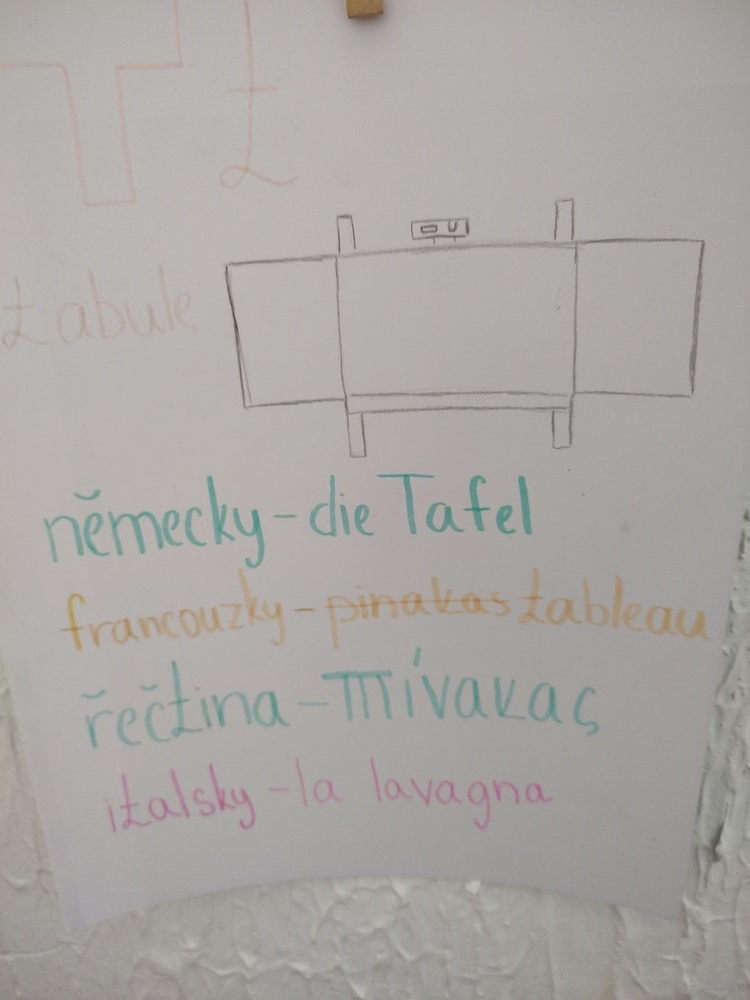 T t
tabule
německy - die Tafel
francouzky - pinakas tableau
řečtina - πίνακας
italsky - la lavagna